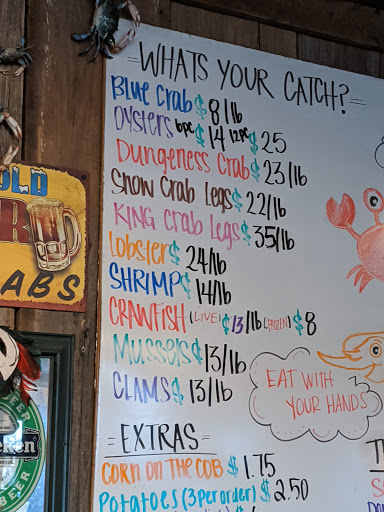 =WHATS YOUR CATCH?=
Blue Crab $8/lb
OYSTERS 6pc $14 12pc $25
Dungeness Crab $23/lb
Snow Crab Legs $22/lb
KING Crab Legs $35/lb
Lobster $24/lb
SHRIMP $14/lb
CRAWFISH (LIVE) $13/lb (FROZEN) $8
Mussels $13/lb
CLAMS $13/lb
EAT WITH
YOUR HANDS
=EXTRAS=
CORN ON THE COB $1.75
Potatoes (3 per order) $2.50
OLD
R
ABS
BEER